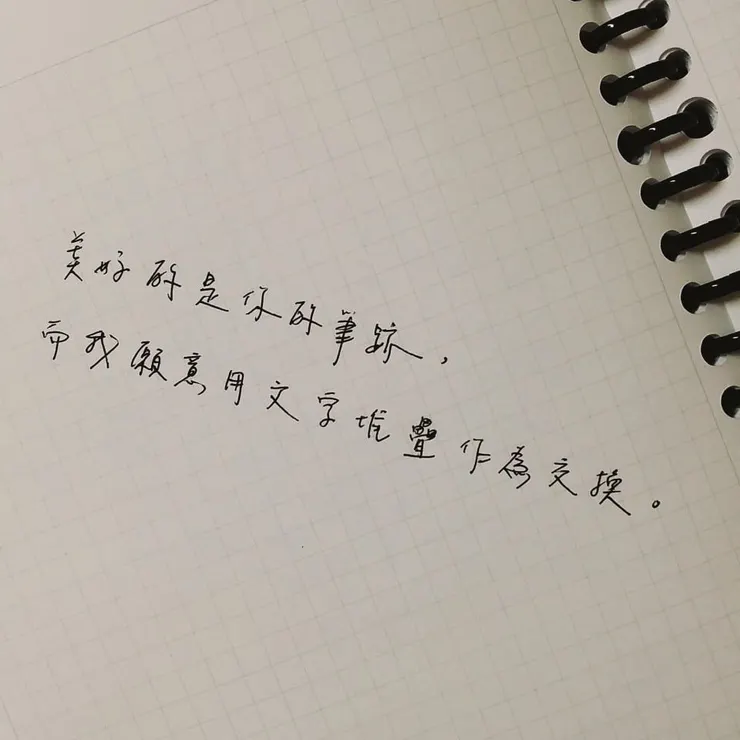 美好的是你的筆跡，
而我願意用文字堆疊作為交換。